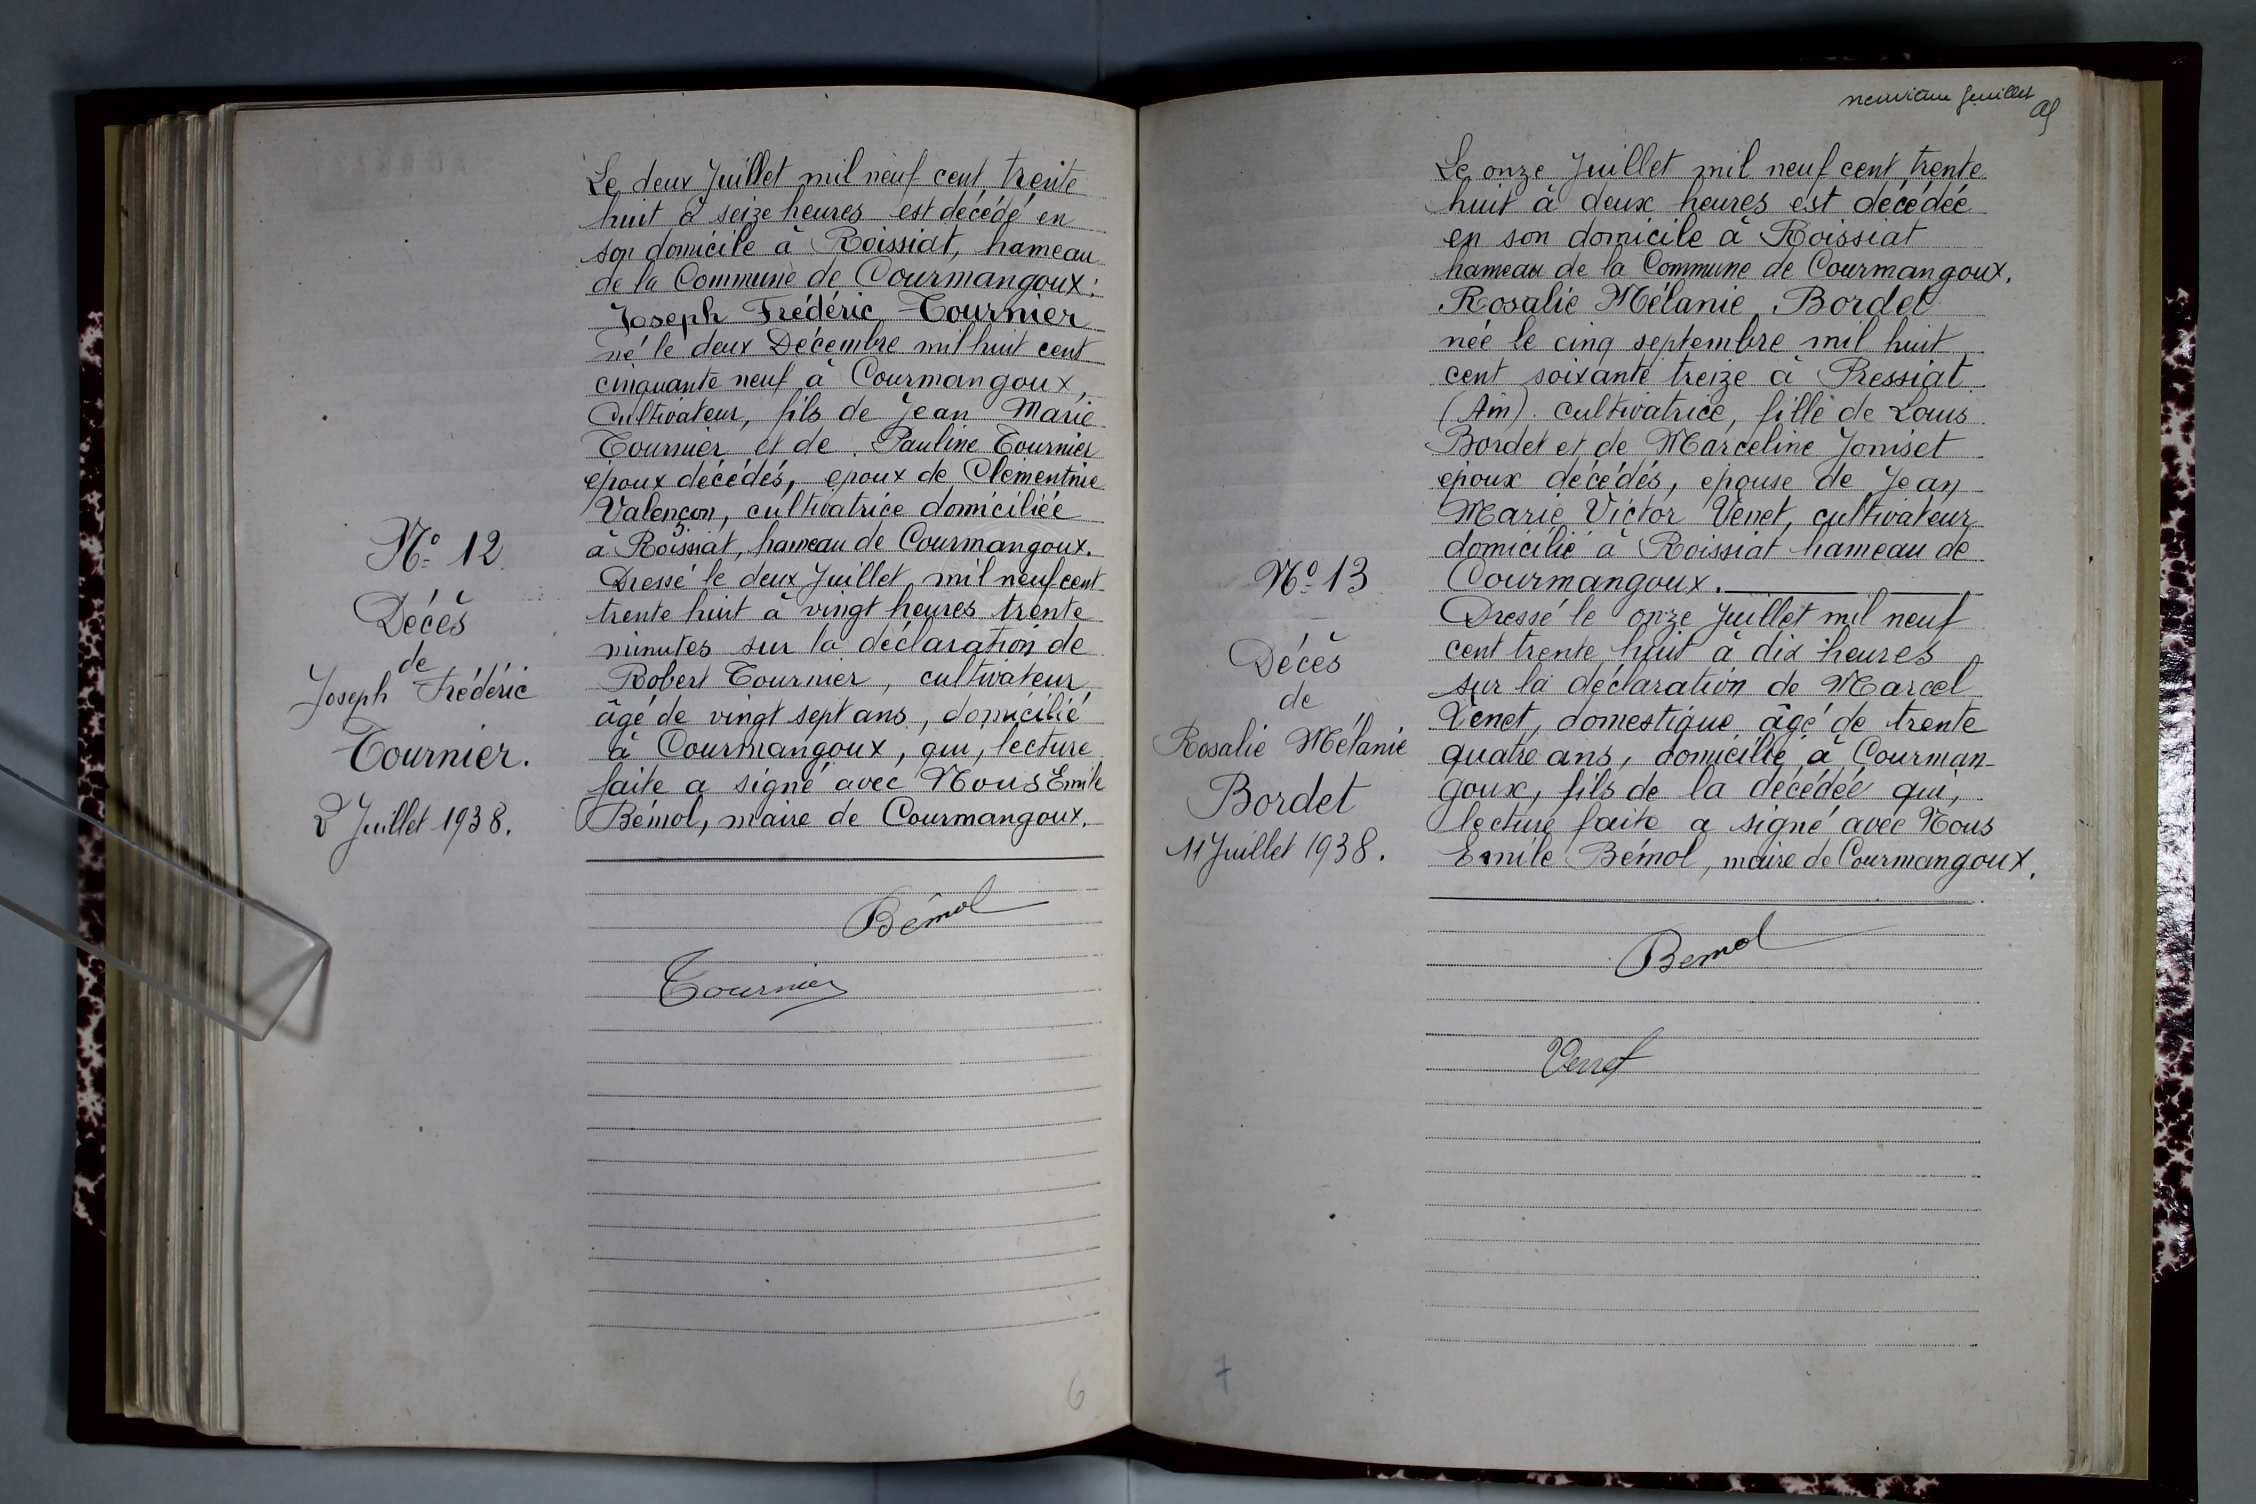 Le deux Juillet mil neuf cent trente
huit à seize heures est décédé en
son domicile à Roissiat, hameau
de la Commune de Courmangoux:
Joseph Frédéric Tournier
né le deux Décembre mil huit cent
cinquante neuf à Courmangoux,
Cultivateur, fils de Jean Marie
Tournier et de Pauline Tournier
époux décédés, époux de Clémentine
Valençon, cultivatrice domiciliée
à Roissiat, hameau de Courmangoux.
Dressé le deux Juillet mil neuf cent
trente huit à vingt heures trente
minutes sur la déclaration de
Robert Tournier, cultivateur,
âgé de vingt sept ans, domicilié
à Courmangoux, qui, lecture
faite a signé avec Nous Emile
Bémol, maire de Courmangoux.
Nº 12
Décès
de
Joseph Frédéric
Tournier.
2 Juillet 1938.
Bémol
Tournier
6
neuvième feuillet
Le onze Juillet mil neuf cent trente
huit à deux heures est décédée
en son domicile à Roissiat
hameau de la Commune de Courmangoux.
Rosalie Mélanie Bordet
née le cinq septembre mil huit
cent soixante treize à Pressiat
(Ain) cultivatrice, fille de Louis
Bordet et de Marceline Joniset
époux décédés, épouse de Jean
Marie Victor Venet, cultivateur
domicilié à Roissiat hameau de
Courmangoux.
Dressé le onze Juillet mil neuf
cent trente huit à dix heures
sur la déclaration de Marcel
Venet, domestique âgé de trente
quatre ans, domicilié à Courman-
goux, fils de la décédée qui,
lecture faite a signé avec Nous
Emile Bémol, maire de Courmangoux.
Nº 13
Décès
de
Rosalie Mélanie
Bordet
11 Juillet 1938.
Bemol
Venet
7